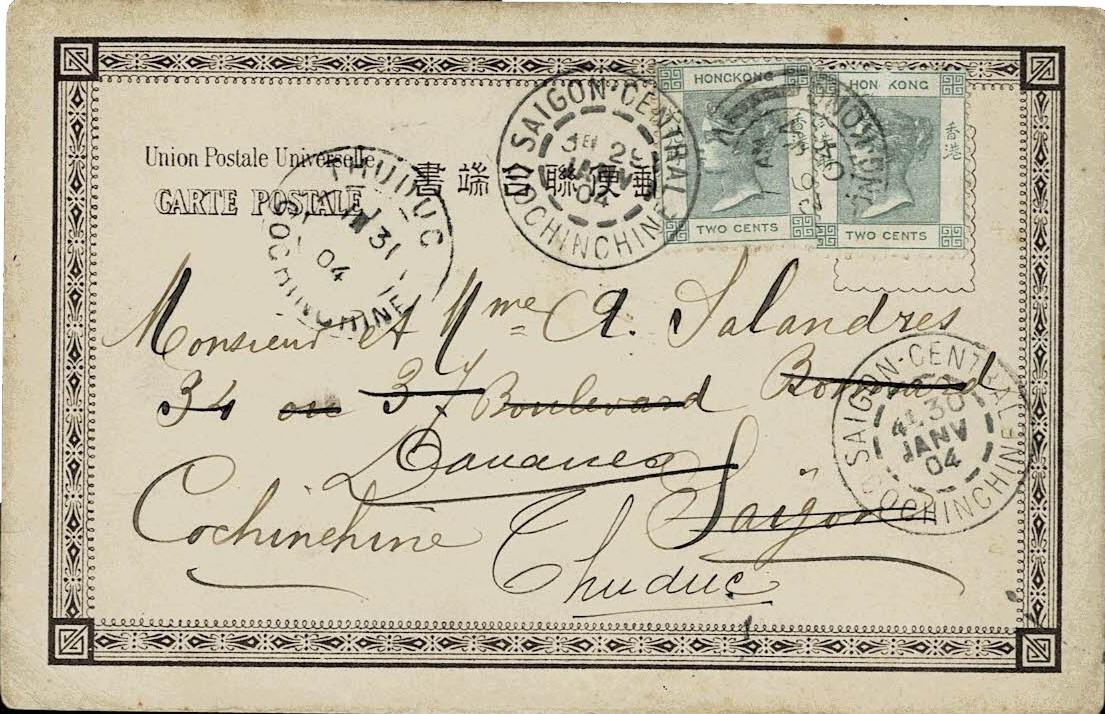 HONGKONG
香港
TWO CENTS
HONGKONG
香港
TWO CENTS
SAIGON-CENTRAL
29
JANV
04
COCHINCHINE
Union Postale Universelle
CARTE POSTALE
書端
便郵
THUDUC
31
04
COCHINCHINE
Monsieur et Mme A. Salandres
34 ou 37 Boulevard Bonnard
Douanes
Saïgon
Cochinchine
Thuduc
SAIGON-CENTRAL
30
JANV
04
COCHINCHINE